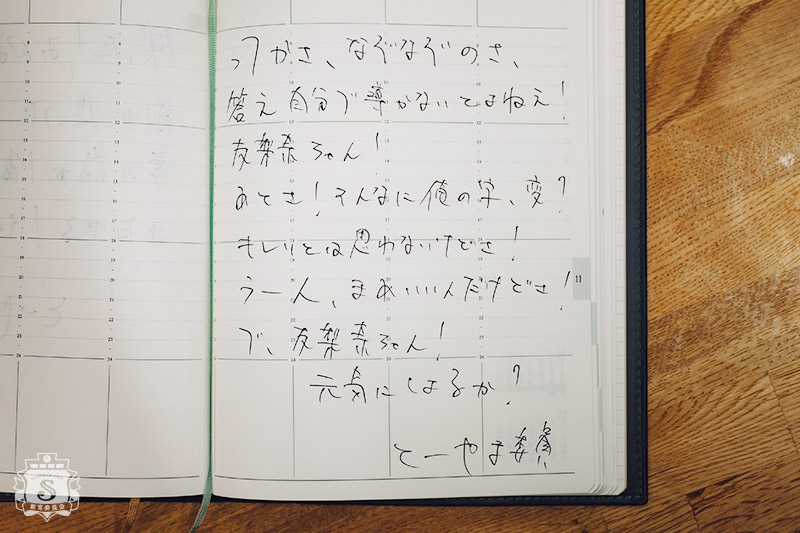 ってかさ、なぞなぞのさ、
答え自分で導かないとまねえ!
友梨奈ちゃん!
あとさ!そんなに俺の字、変?
キレイとは思わないけどさ!
うーん、まあいいんだけどさ!
で、友梨奈ちゃん!
元気にしてるか?
とーやま委員
11
S
教育委員会